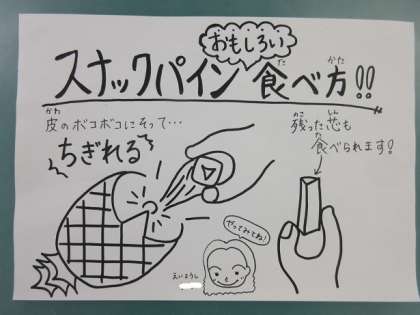 おもしろい
スナックパイン食べ方!!
た かた
かわ
皮のボコボコにそって…
ちぎれる
のこ しん
残った芯も
た
食べられます!
やってみてね!
えいようし